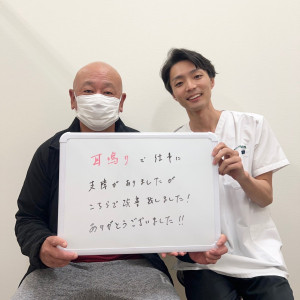 耳鳴りで仕事に
支障がありましたが
こちらで改善致しました！
ありがとうございました!!